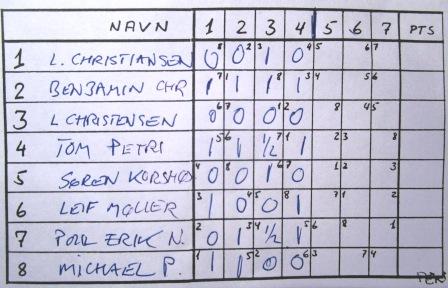 NAVN 1 2 3 4 5 6 7 PTS
1 L. CHRISTIANSEN 0 8 0 2 3 1 0 4 5 6 7
2 BENJAMIN CHR 1 7 1 1 1 8 1 3 4 5 6
3 L CHRISTENSEN 0 6 7 0 0 1 2 0 8 4 5
4 TOM PETRI 1 5 6 1 ½ 7 1 1 2 3 8
5 SØREN KORSHØJ 4 0 8 0 1 6 7 0 1 2 3
6 LEIF MØLLER 3 1 0 4 5 0 8 1 7 1 2
7 POUL ERIK N. 2 0 1 3 4 ½ 1 5 6 8 1
8 MICHAEL P. 1 1 1 5 2 0 0 6 3 7 4